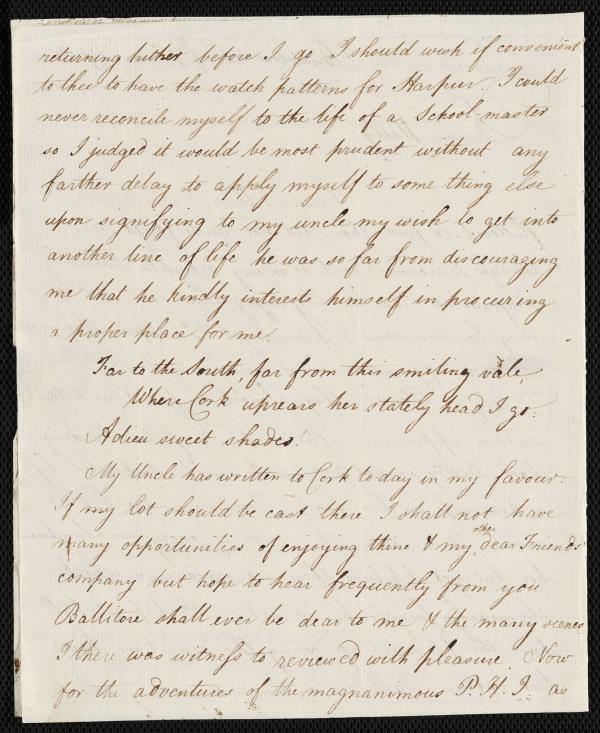 returning hither before I go I should wish if convenient
to thee to have the watch patterns for Harpur. I could
never reconcile myself to the life of a School-master
so I judged it would be most prudent without any
farther delay to apply myself to some thing else
upon signifying to my uncle my wish to get into
another line of life he was so far from discouraging
me that he kindly interests himself in procuring
a proper place for me.
Far to the South, far from this smiling vale,
Where Cork uprears her stately head I go.
Adieu sweet shades.
My Uncle has written to Cork to day in my favour.
If my lot should be cast there I shall not have
many opportunities of enjoying thine & my other dear Friends'
company but hope to hear frequently from you
Ballitore shall ever be dear to me & the many scenes
I there was witness to reviewed with pleasure. Now
for the adventures of the magnanimous P. H. I. as